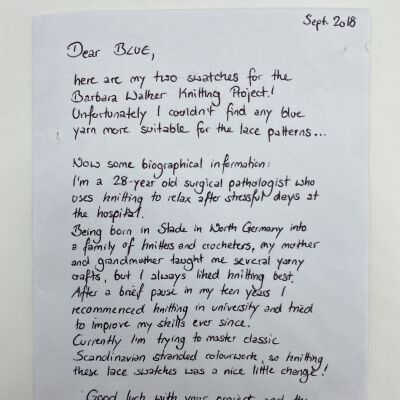 Sept. 2018
Dear BLUE,
here are my two swatches for the
Barbara Walker Knitting Project!
Unfortunately I couldn't find any blue
yarn more suitable for the lace patterns...
Now some biographical information:
I'm a 28-year old surgical pathologist who
uses knitting to relax after stressful days at
the hospital.
Being born in Stade in North Germany into
a family of knitters and crocheters, my mother
and grandmother taught me several yarny
crafts, but I always liked knitting best.
After a brief pause in my teen years I
recommenced knitting in university and tried
to improve my skills ever since.
Currently I'm trying to master classic
Scandinavian stranded colourwork, so knitting
these lace swatches was a nice little change!
Good luck with your project and the